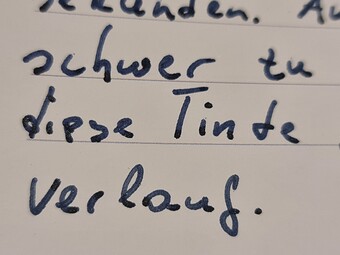 sekunden. Au
schwer zu
diese Tinte
verlauf.